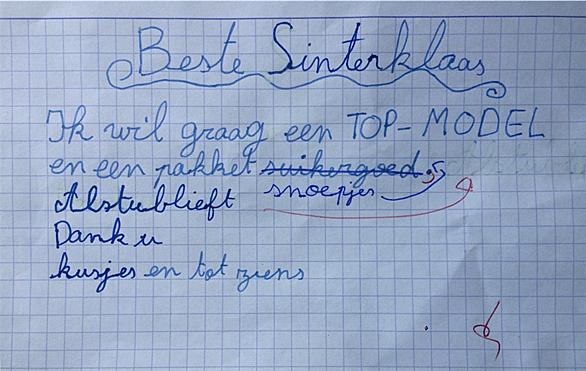 Beste Sinterklaas
Ik wil graag een TOP-MODEL
en een pakket suikergoed.
snoepjes
Alstublieft
Dank u
kusjes en tot ziens